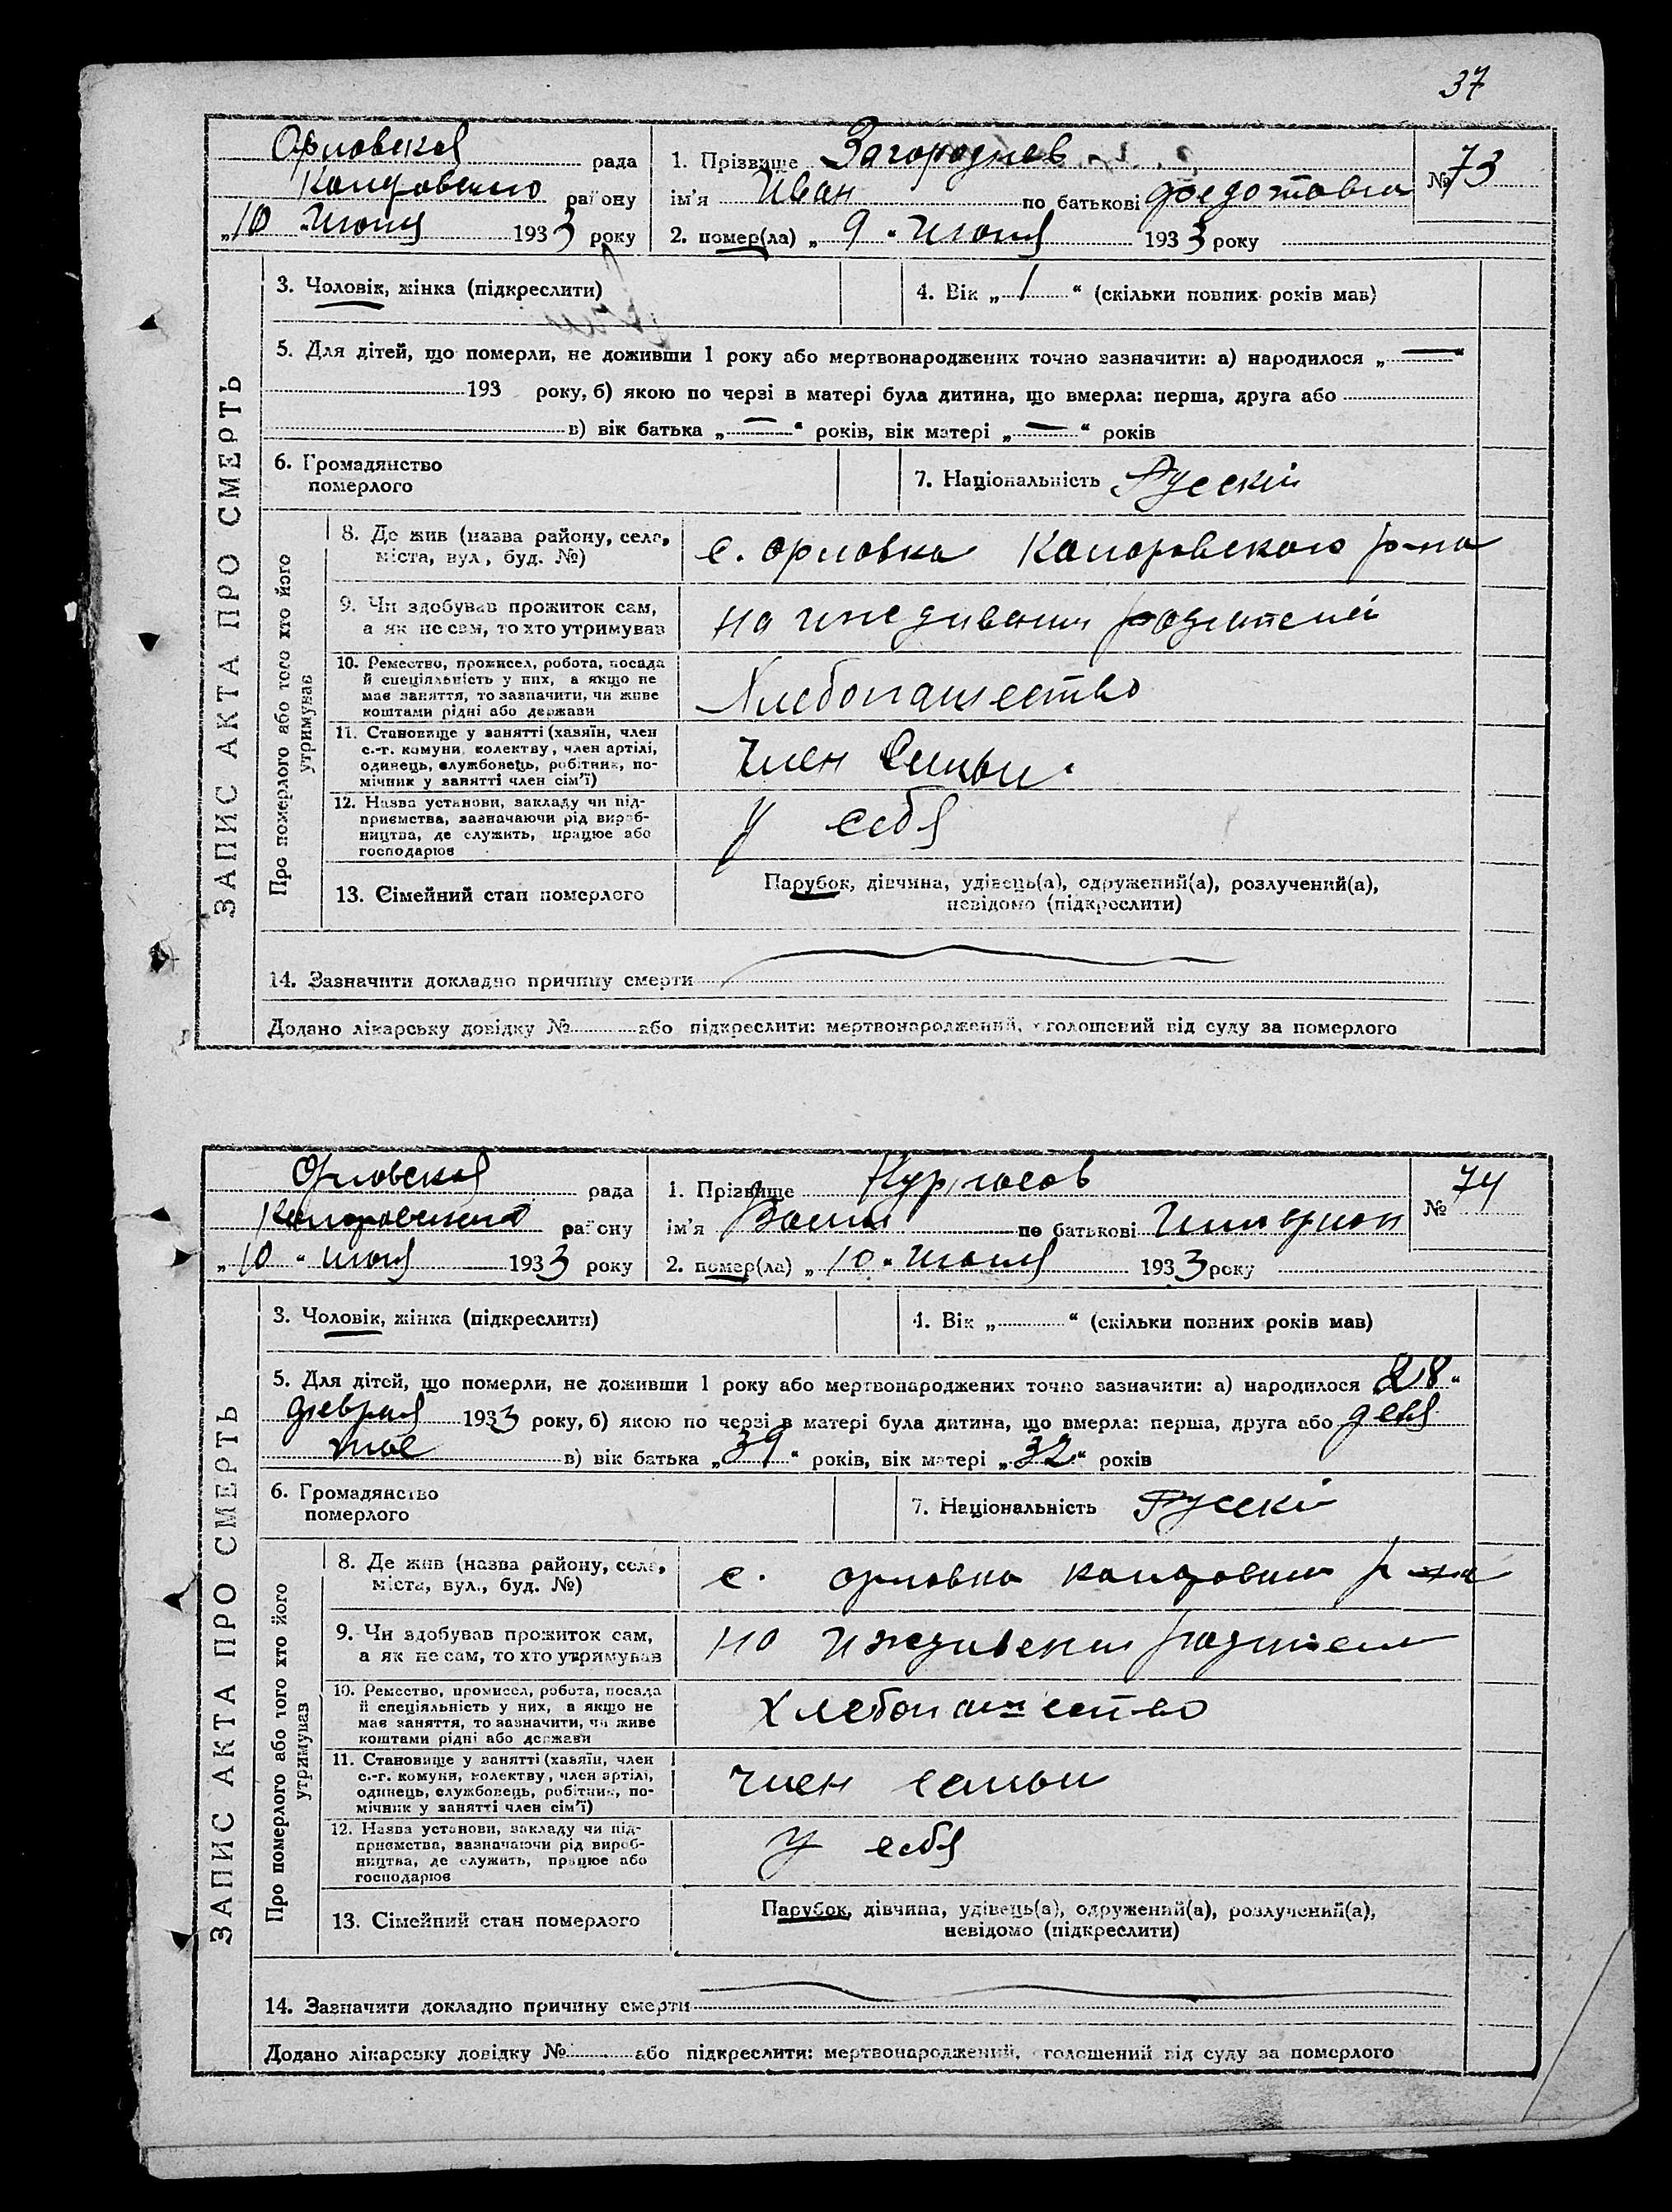 37
Орловская рада
Каларовского району
„10 " Июня 1933 року
1. Прізвище Загороднев
ім'я Иван по батькові Федотович
2. помер(ла) „ 9 " Июня 1933 року
№ 73
ЗАПИС АКТА ПРО СМЕРТЬ
3. Чоловік, жінка (підкреслити)
4. Вік „ 1 " (скільки повних років мав)
5. Для дітей, що померли, не доживши 1 року або мертвонароджених точно зазначити: а) народилося „ — "
193 року, б) якою по черзі в матері була дитина, що вмерла: перша, друга або
в) вік батька „ — " років, вік матері „ — " років
6. Громадянство
померлого
7. Національність Рускій
Про померлого або того хто його
утримував
8. Де жив (назва району, села,
міста, вул., буд. №)
с. Орловка Каларовского р-на
9. Чи здобував прожиток сам,
а як не сам, то хто утримував
на иждивении родителей
10. Ремество, промисел, робота, посада
й спеціяльність у них, а якщо не
має заняття, то зазначити, чи живе
коштами рідні або держави
Хлебопашество
11. Становище у занятті (хазяїн, член
с.-г. комуни, колективу, член артілі,
одинець, службовець, робітник, по-
мічник у занятті член сім'ї)
Член Семьи
12. Назва установи, закладу чи під-
приємства, зазначаючи рід вироб-
ництва, де служить, працює або
господарює
У себя
13. Сімейний стан померлого
Парубок, дівчина, удівець(а), одружений(а), розлучений(а),
невідомо (підкреслити)
14. Зазначити докладно причину смерти
Додано лікарську довідку № або підкреслити: мертвонароджений, оголошений від суду за померлого
Орловская рада
Каларовского району
„ 10 " июня 1933 року
1. Прізвище
ім'я по батькові
2. помер(ла) „ 10 " Июня 1933 року
№ 74
ЗАПИС АКТА ПРО СМЕРТЬ
3. Чоловік, жінка (підкреслити)
4. Вік „ " (скільки повних років мав)
5. Для дітей, що померли, не доживши 1 року або мертвонароджених точно зазначити: а) народилося „ 28 "
февраля 1933 року, б) якою по черзі в матері була дитина, що вмерла: перша, друга або девя
тое в) вік батька „ 39 " років, вік матері „ 32 " років
6. Громадянство
померлого
7. Національність Рускі
Про померлого або того хто його
утримував
8. Де жив (назва району, села,
міста, вул., буд. №)
с. орловка р-на
9. Чи здобував прожиток сам,
а як не сам, то хто утримував
на иждивении родителей
10. Ремество, промисел, робота, посада
й спеціяльність у них, а якщо не
має заняття, то зазначити, чи живе
коштами рідні або держави
Хлебопашество
11. Становище у занятті (хазяїн, член
с.-г. комуни, колективу, член артілі,
одинець, службовець, робітник, по-
мічник у занятті член сім'ї)
Член семьи
12. Назва установи, закладу чи під-
приємства, зазначаючи рід вироб-
ництва, де служить, працює або
господарює
У себя
13. Сімейний стан померлого
Парубок, дівчина, удівець(а), одружений(а), розлучений(а),
невідомо (підкреслити)
14. Зазначити докладно причину смерти
Додано лікарську довідку № або підкреслити: мертвонароджений, оголошений від суду за померлого